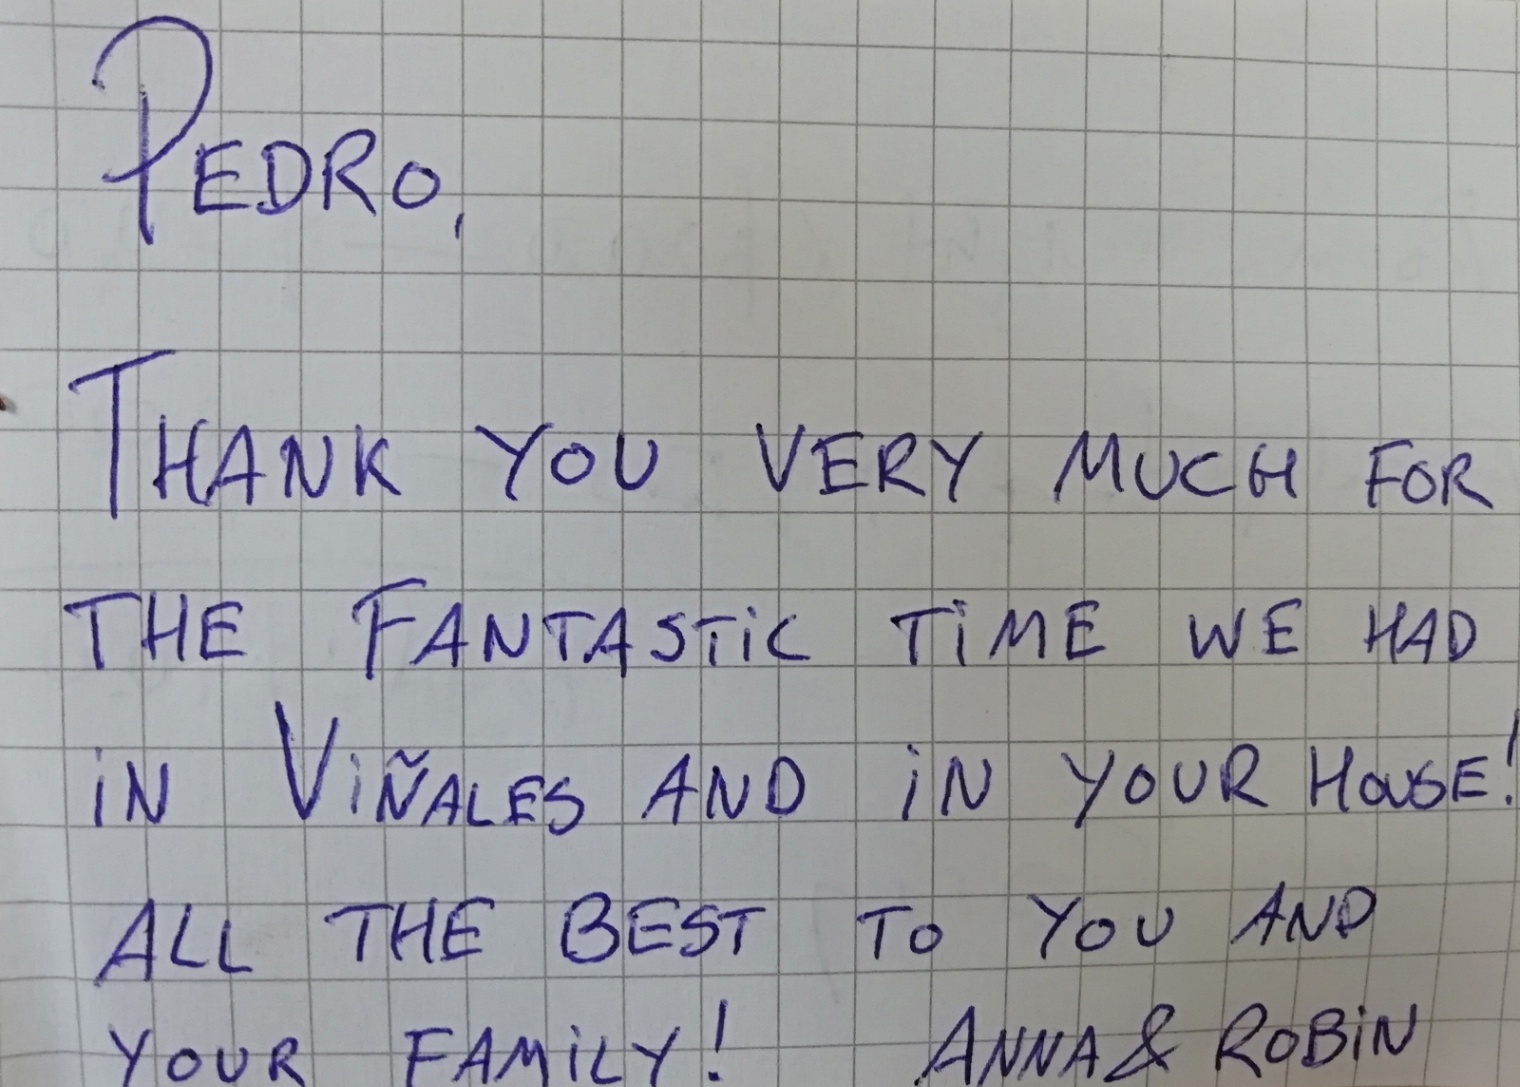 PEDRO,
THANK YOU VERY MUCH FOR
THE FANTASTIC TIME WE HAD
IN VIÑALES AND IN YOUR HOUSE!
ALL THE BEST TO YOU AND
YOUR FAMILY! ANNA & ROBIN